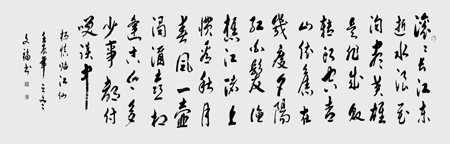 滚〻长江东
逝水浪花
淘尽英雄
是非成败
转头空青
山依旧在
幾度夕陽
红白髮渔
樵江渚上
惯看秋月
春风一壶
浊酒喜相
逢古今多
少事都付
笑谈中
杨慎临江仙